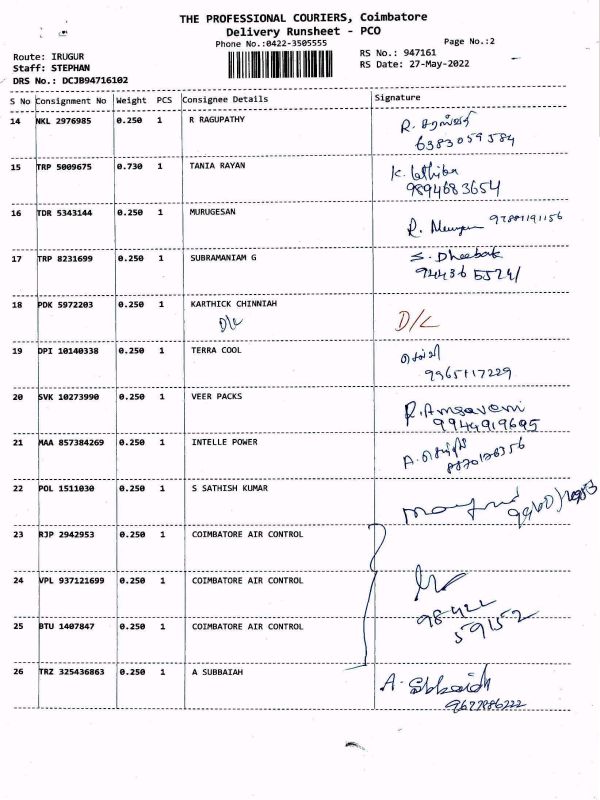 THE PROFESSIONAL COURIERS, Coimbatore
Delivery Runsheet - PCO
Phone No.:0422-3505555
Page No.:2
Route: IRUGUR
Staff: STEPHAN
DRS No.: DCJB94716102
RS No.: 947161
RS Date: 27-May-2022
S No Consignment No Weight PCS Consignee Details Signature
14 NKL 2976985 0.250 1 R RAGUPATHY
R. சரஸ்வதி
6383059584
15 TRP 5009675 0.730 1 TANIA RAYAN
K. Lathika
9894683654
16 TDR 5343144 0.250 1 MURUGESAN
R.
17 TRP 8231699 0.250 1 SUBRAMANIAM G
S. Dheebak
18 PDK 5972203 0.250 1 KARTHICK CHINNIAH
D/L D/L
19 DPI 10140338 0.250 1 TERRA COOL
செல்வி
9965117229
20 SVK 10273990 0.250 1 VEER PACKS
R. Amsaveni
9944919695
21 MAA 857384269 0.250 1 INTELLE POWER
A.
8870126356
22 POL 1511030 0.250 1 S SATHISH KUMAR
23 RJP 2942953 0.250 1 COIMBATORE AIR CONTROL
24 VPL 937121699 0.250 1 COIMBATORE AIR CONTROL
98422
59152
25 BTU 1407847 0.250 1 COIMBATORE AIR CONTROL
26 TRZ 325436863 0.250 1 A SUBBAIAH
A. Subbaiah
9677886222